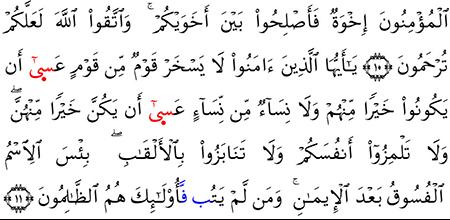 ٱلۡمُؤۡمِنُونَ إِخۡوَةٞ فَأَصۡلِحُواْ بَيۡنَ أَخَوَيۡكُمۡۚ وَٱتَّقُواْ ٱللَّهَ لَعَلَّكُمۡ
تُرۡحَمُونَ ١٠ يَٰٓأَيُّهَا ٱلَّذِينَ ءَامَنُواْ لَا يَسۡخَرۡ قَوۡمٞ مِّن قَوۡمٍ عَسَىٰٓ أَن
يَكُونُواْ خَيۡرٗا مِّنۡهُمۡ وَلَا نِسَآءٞ مِّن نِّسَآءٍ عَسَىٰٓ أَن يَكُنَّ خَيۡرٗا مِّنۡهُنَّۖ
وَلَا تَلۡمِزُوٓاْ أَنفُسَكُمۡ وَلَا تَنَابَزُواْ بِٱلۡأَلۡقَٰبِۖ بِئۡسَ ٱلِٱسۡمُ
ٱلۡفُسُوقُ بَعۡدَ ٱلۡإِيمَٰنِۚ وَمَن لَّمۡ يَتُب فَّأُوْلَٰٓئِكَ هُمُ ٱلظَّٰلِمُونَ ١١